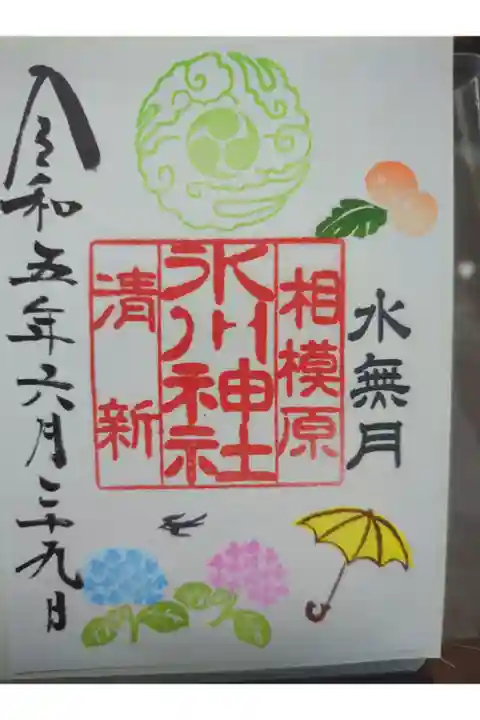 水無月
相模原
氷川神社
清新
令和五年六月二十九日